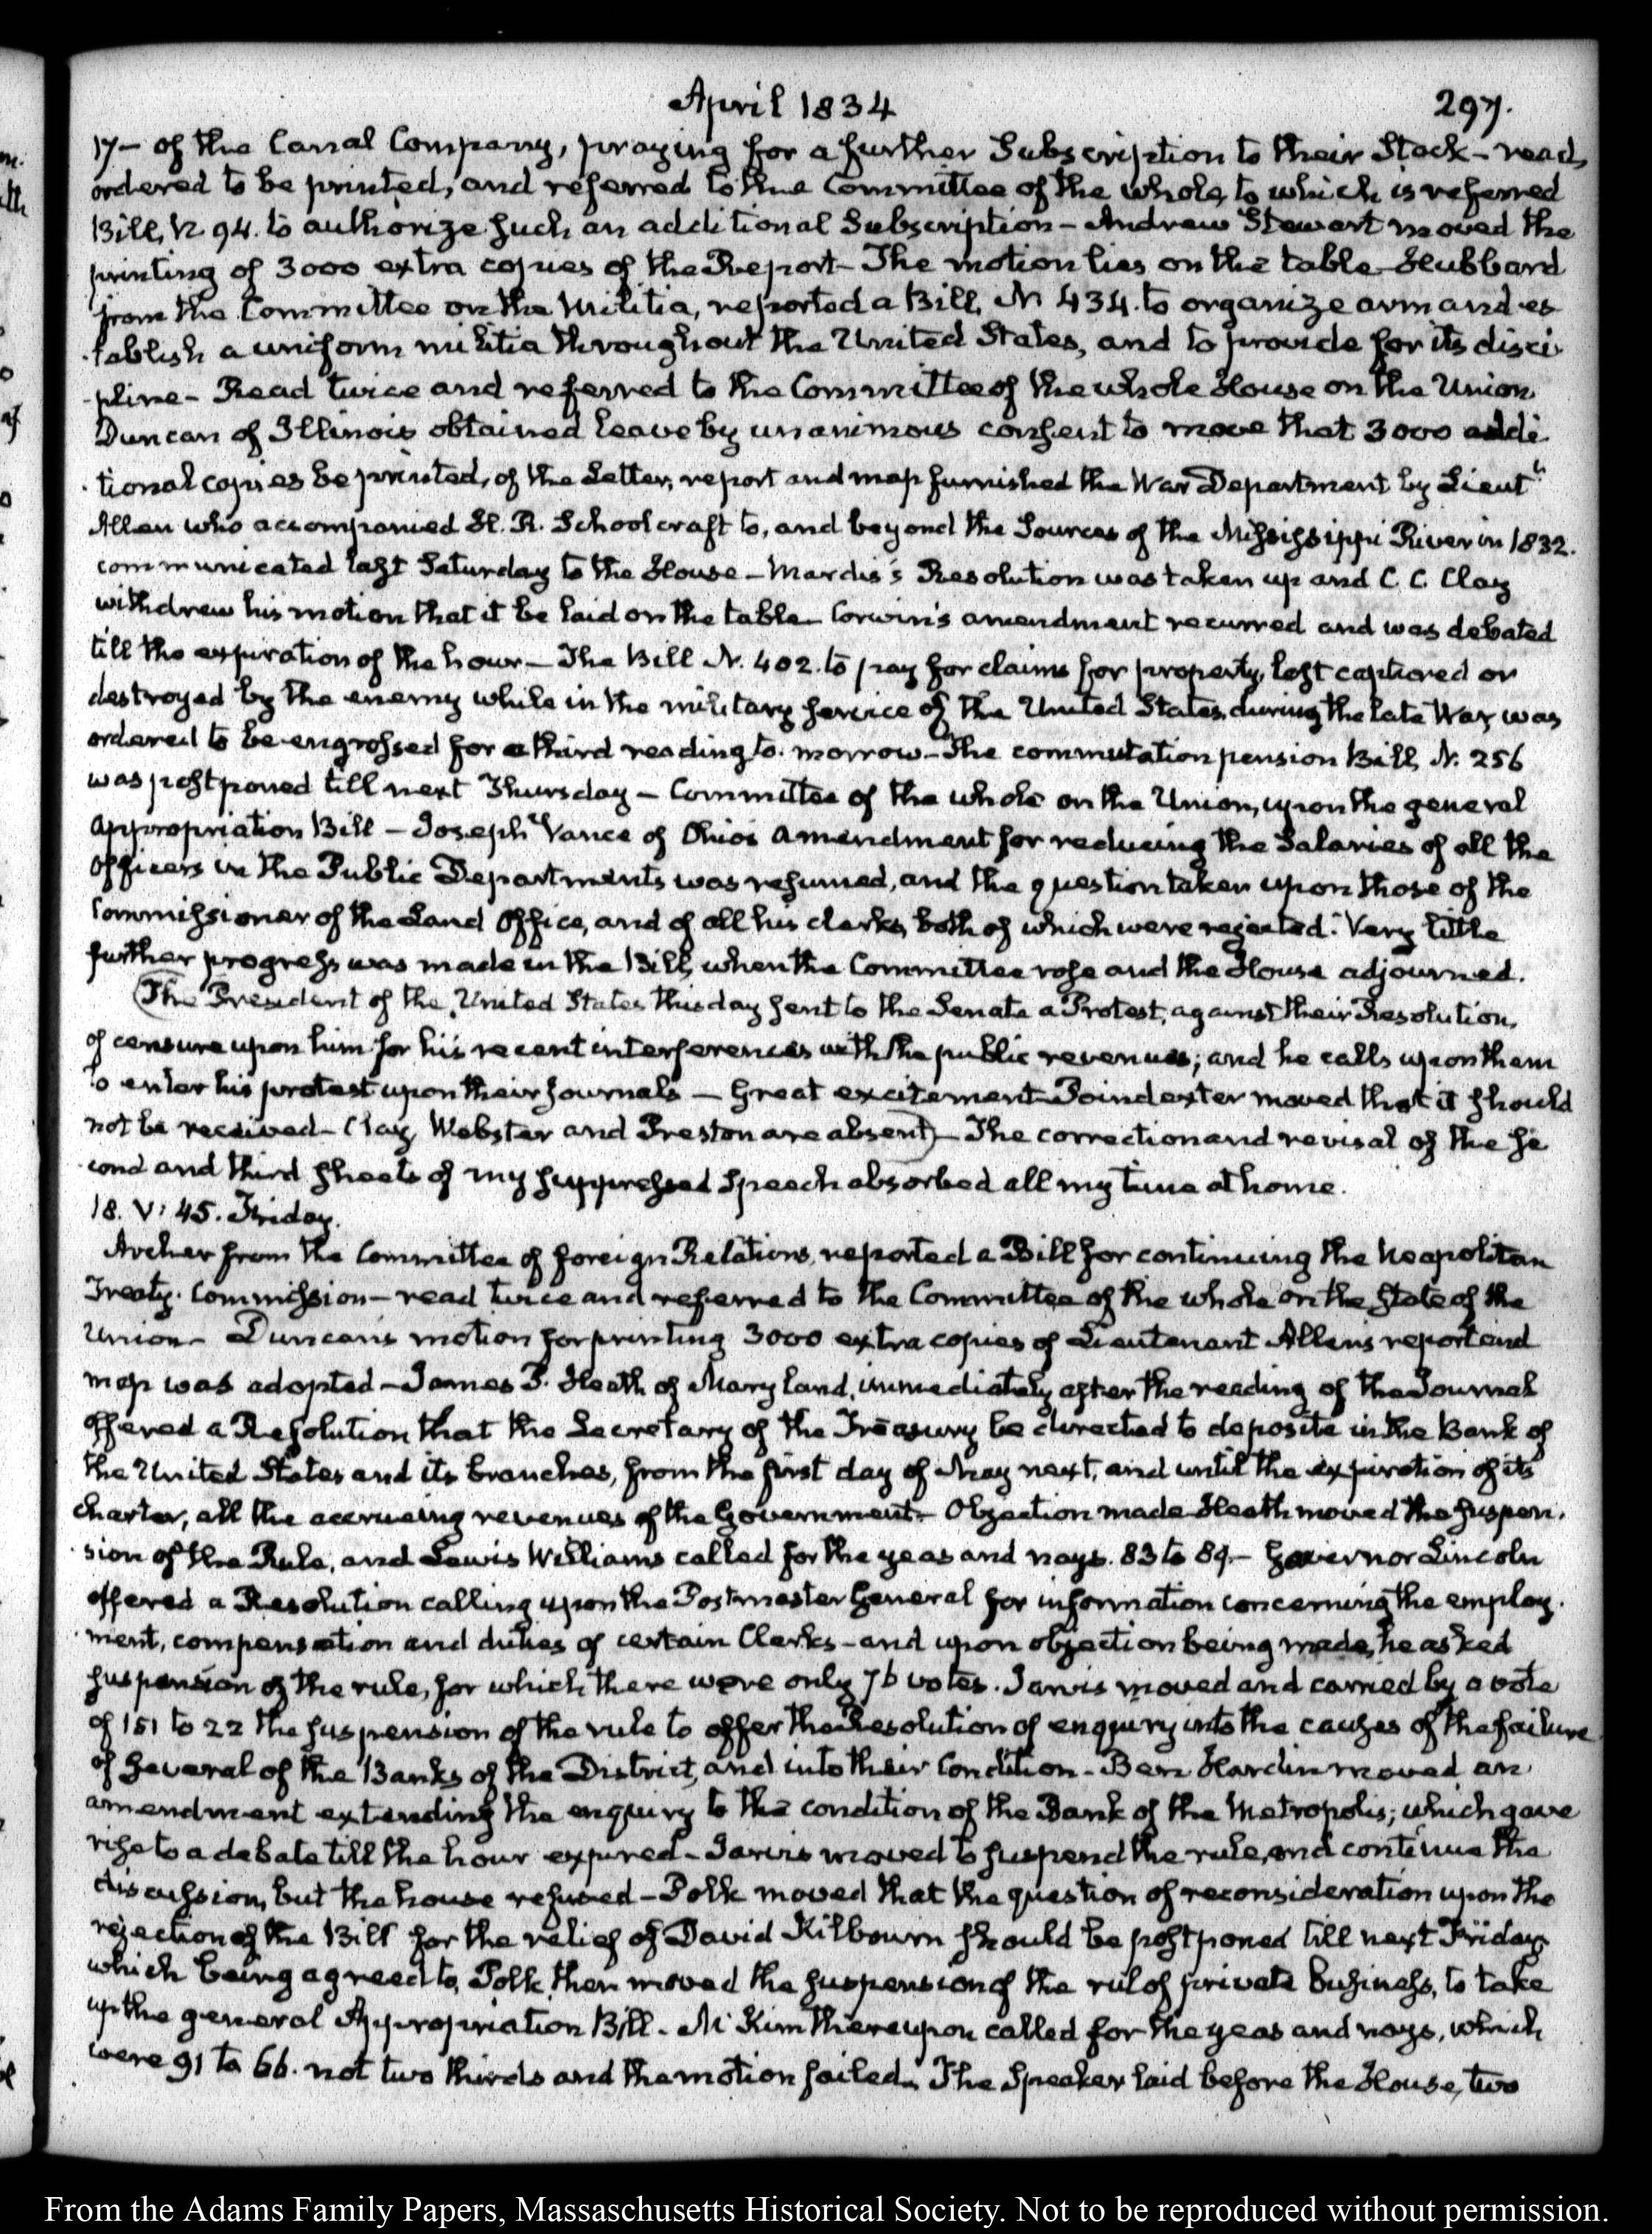 April 1834
297.
17- of the Canal Company, praying for a further Subscription to their Stock - read,
ordered to be printed, and referred to the Committee of the whole, to which is referred
Bill, N 94. to authorize such an additional Subscription - Andrew Stewart moved the
printing of 3000 extra copies of the Report - The motion lies on the table - Hubbard
from the Committee on the Militia, reported a Bill, N 434. to organize arm and es
-tablish a uniform militia throughout the United States, and to provide for its disci
-pline - Read twice and referred to the Committee of the whole House on the Union
Duncan of Illinois obtained leave by unanimous consent to move that 3000 addi
-tional copies be printed, of the Letter, report and map furnished the War Department by Lieutt
Allen who accompanied H. R. Schoolcraft to, and beyond the Sources of the Mississippi River in 1832.
communicated last Saturday to the House - Mardis's Resolution was taken up and C. C. Clay
withdrew his motion that it be laid on the table - Corwin's amendment recurred and was debated
till the expiration of the hour - The Bill N. 402. to pay for claims for property, lost captured or
destroyed by the enemy while in the military service of the United States, during the late War, was
ordered to be engrossed for a third reading to-morrow - The commutation pension Bill, N. 256
was postponed till next Thursday - Committee of the whole on the Union, upon the general
appropriation Bill - Joseph Vance of Ohio's amendment for reducing the Salaries of all the
Officers in the Public Departments was resumed, and the question taken upon those of the
Commissioner of the Land Office, and of all his clerks, both of which were rejected. Very little
further progress was made in the Bill, when the Committee rose and the House adjourned.
(The President of the United States this day sent to the Senate a Protest, against their Resolution,
of censure upon him for his recent interferences with the public revenues; and he calls upon them
to enter his protest upon their journals - Great excitement - Poindexter moved that it should
not be received - Clay, Webster and Preston are absent) - The correction and revisal of the se
-cond and third sheets of my suppressed Speech absorbed all my time at home.
18. V: 45. Friday.
Archer from the Committee of foreign Relations, reported a Bill for continuing the Neapolitan
Treaty. Commission - read twice and referred to the Committee of the whole on the state of the
Union - Duncan's motion for printing 3000 extra copies of Lieutenant Allen's report and
map was adopted - James P. Heath of Maryland, immediately after the reading of the Journal
offered a Resolution that the Secretary of the Treasury be directed to deposite in the Bank of
the United States and its branches, from the first day of May next, and until the expiration of its
charter, all the accrueing revenues of the Government - Objection made Heath moved the suspen.
-sion of the Rule, and Lewis Williams called for the yeas and nays. 83 to 89. - Governor Lincoln
offered a Resolution calling upon the Postmaster General for information concerning the employ.
-ment, compensation and duties of certain Clerks - and upon objection being made, he asked
suspension of the rule, for which there were only 76 votes. Jarvis moved and carried by a vote
of 151 to 22 the suspension of the rule to offer the Resolution of enquiry into the causes of the failure
of several of the Banks of the District, and into their Condition - Ben Hardin moved an
amendment extending the enquiry to the condition of the Bank of the Metropolis; which gave
rise to a debate till the hour expired - Jarvis moved to suspend the rule, and continue the
discussion, but the house refused - Polk moved that the question of reconsideration upon the
rejection of the Bill for the relief of David Kilbourn should be postponed till next Friday
which being agreed to, Polk then moved the suspension of the rul of private business, to take
up the general Appropriation Bill. McKim thereupon called for the yeas and nays, which
were 91 to 66. not two thirds and the motion failed. The Speaker laid before the House, two
From the Adams Family Papers, Massachusetts Historical Society. Not to be reproduced without permission.